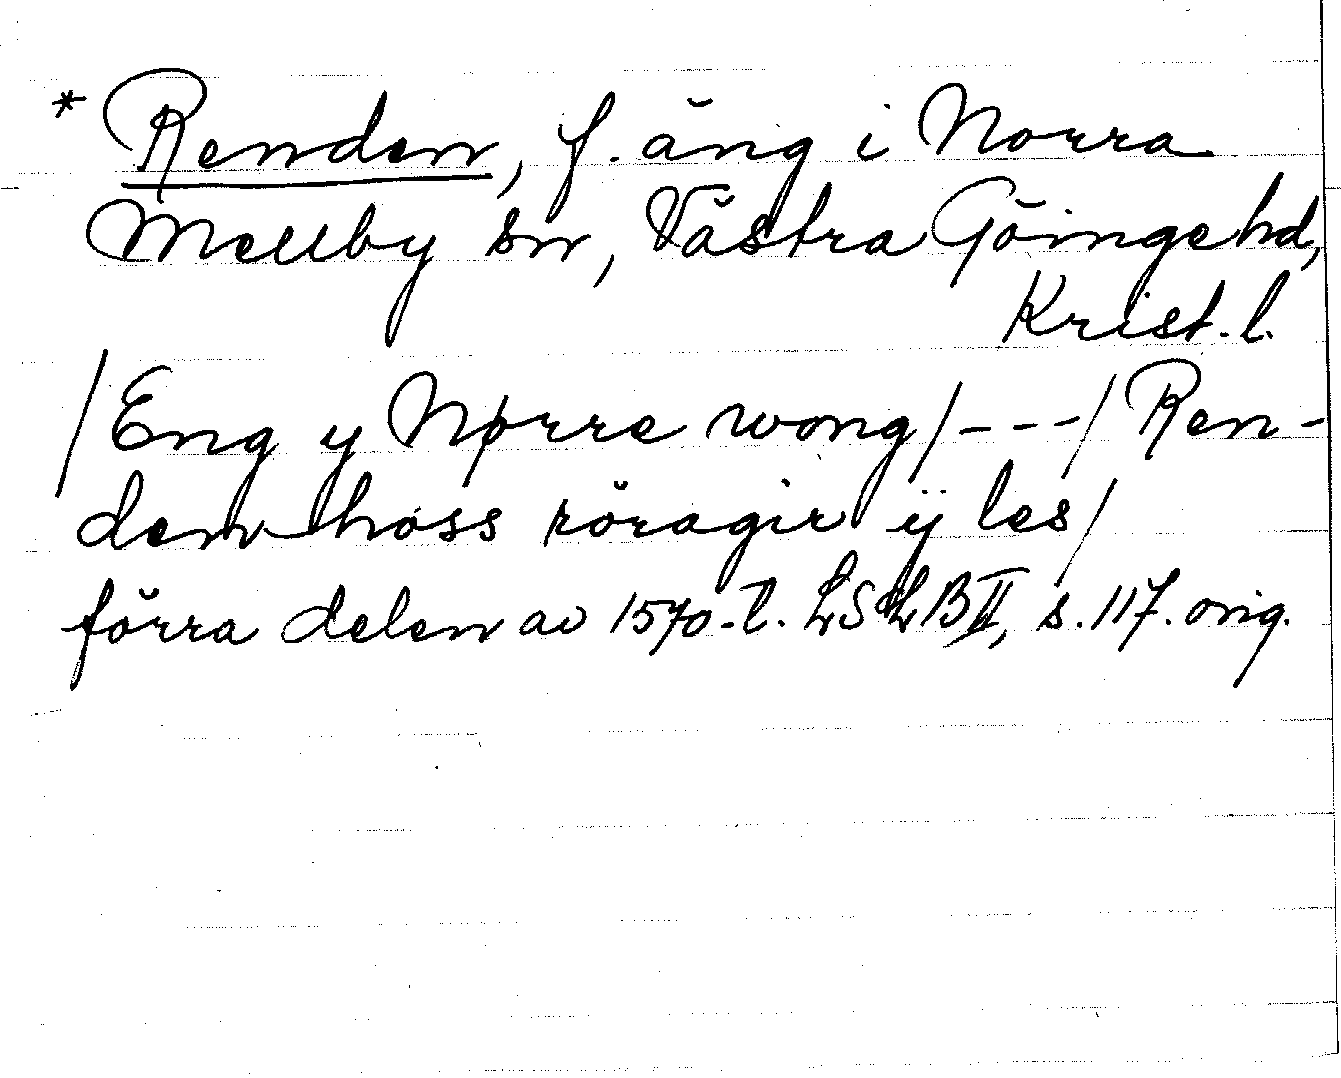 * Renden, f. äng i Norra
Mellby sn, Västra Göinge hd,
Krist. l.
/Eng y Nørre wong/---/Ren-
den hoss röragir ÿ les/
förra delen av 1570-t. LSLB II, s. 117. orig.